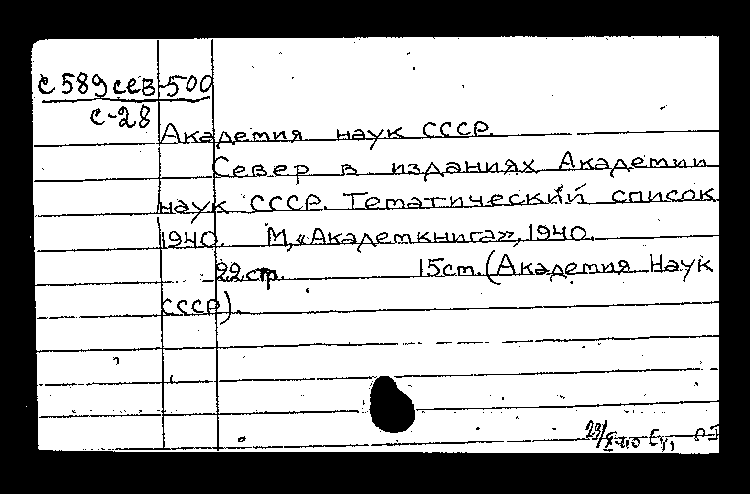 С589сев-500
С-28
Академия наук СССР.
Север в изданиях Академии
наук СССР. Тематический список
1940. М, «Академкнига», 1940.
22 стр. 15 cm. (Академия Наук
СССР).